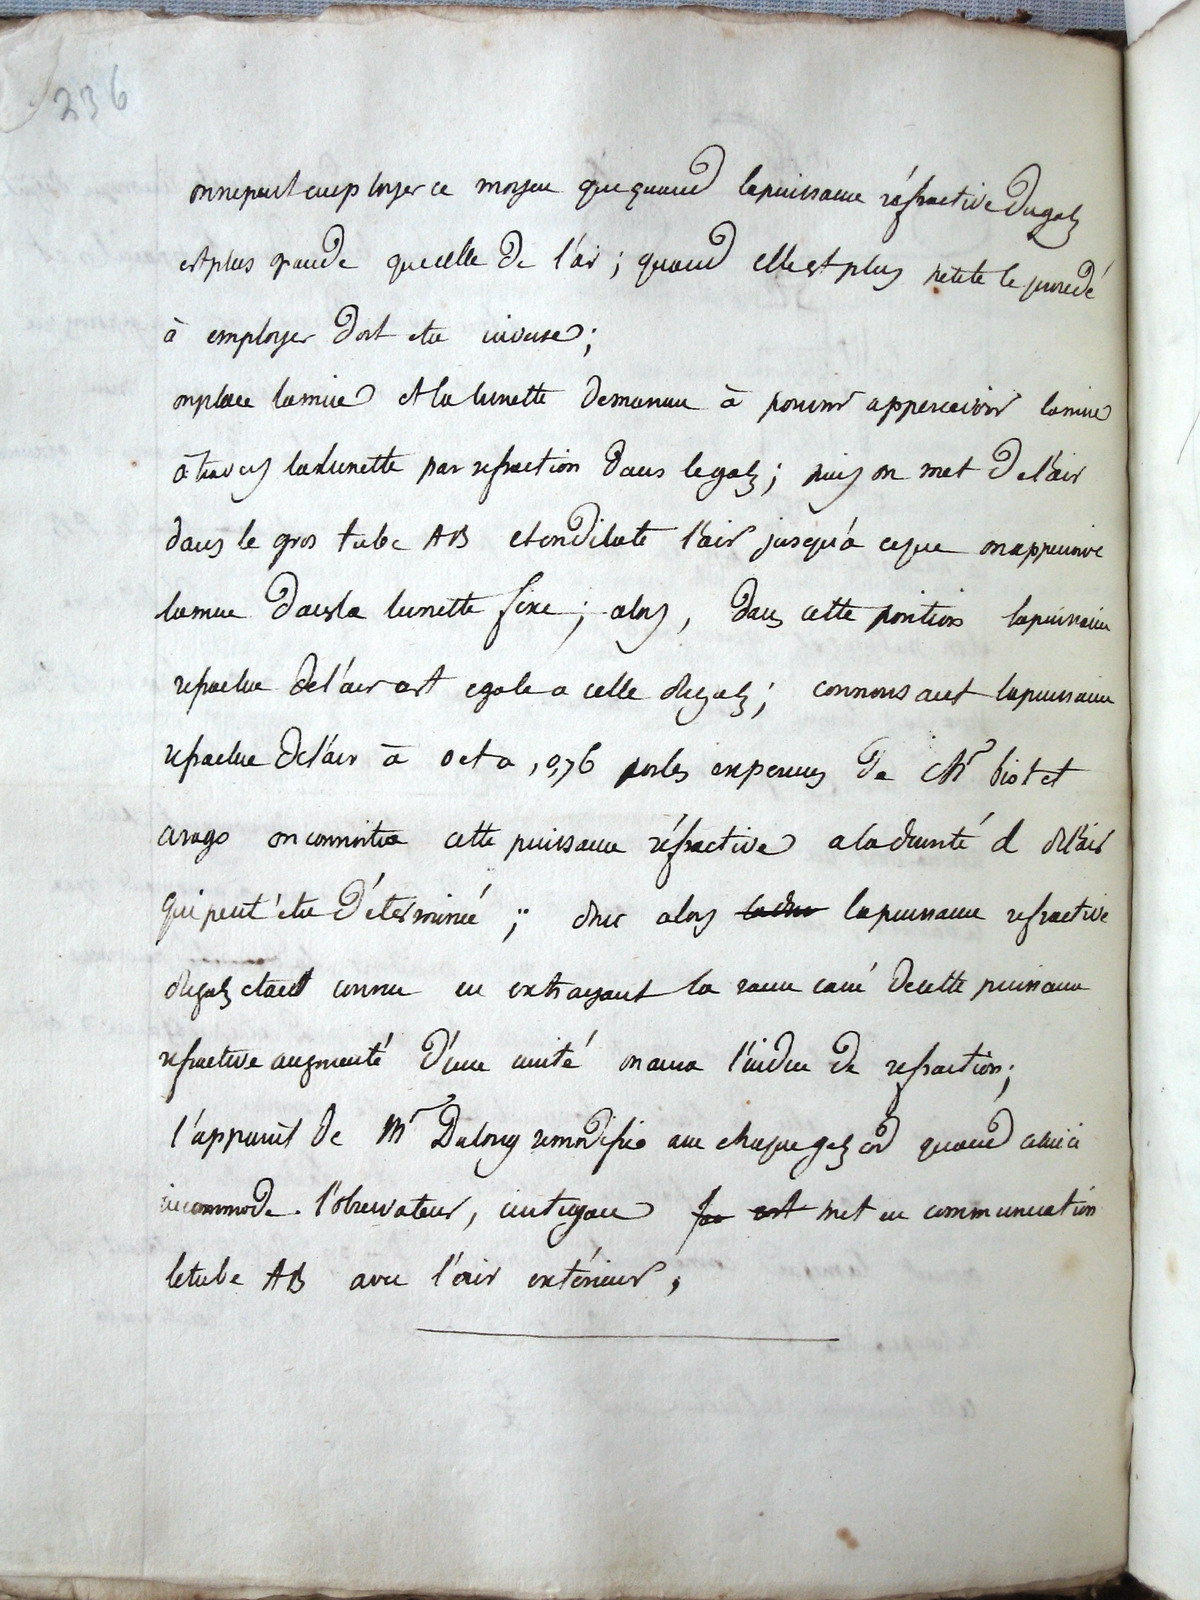 236
on ne peut employer ce moyen que quand la puissance réfractive du gaz
est plus grande que celle de l'air ; quand elle est plus petite le procédé
à employer doit etre inverse ;
on place la mire et la lunette de maniere à pouvoir appercevoir la mire
à travers la lunette par refraction dans le gaz ; puis on met de l'air
dans le gros tube AB et on dilate l'air jusqu'à ce que on appercoive
la mire dans la lunette fixe ; alors, dans cette position la puissance
refractive de l'air est egale a celle du gaz ; connoissant la puissance
refractive de l'air à 0 et a ,0,76 par les experiences de Mr biot et
arago on connoitra cette puissance réfractive a la densité d de l'air
qui peut être déterminée ; donc alors la puissance refractive
du gaz etant connue en extrayant la racine carré de cette puissance
refractive augmenté d'une unité on aura l'indice de refraction ;
l'appareil de Mr Dulong se modifie avec chaque gaz car quand celui ci
incommode l'observateur, un tuyau met en communication
le tube AB avec l'air extérieur ,